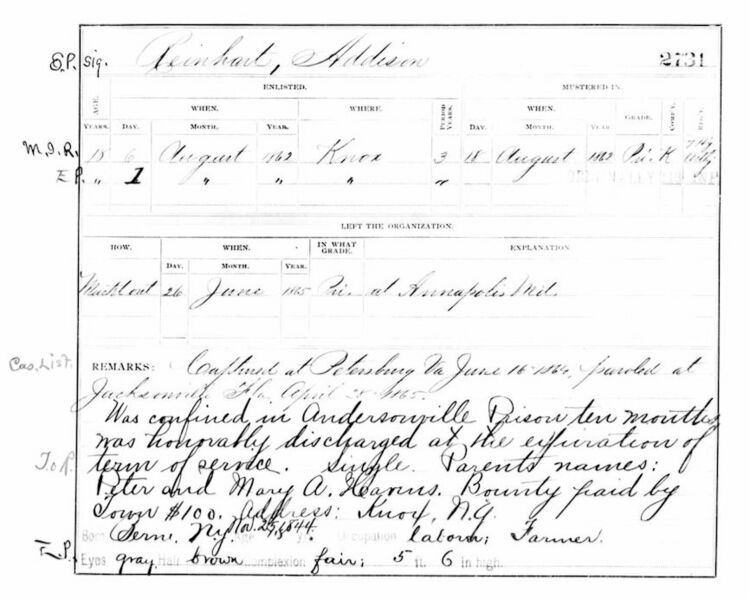 E.P. Sig. Reinhart, Addison 2731
ENLISTED. MUSTERED IN.
AGE. WHEN. WHERE. PERIOD YEARS. WHEN. GRADE. COMP'Y. REG'T.
YEARS. DAY. MONTH. YEAR. DAY. MONTH. YEAR
M.I.R. 18 6 August 1862 Knox 3 18 August 1862 Pri. K 7th
E.P. " 1 " " " "
LEFT THE ORGANIZATION.
HOW. WHEN. IN WHAT GRADE. EXPLANATION
DAY. MONTH. YEAR.
Must out 26 June 1865 Pri. at Annapolis Md.
Cas. List. REMARKS: Captured at Petersburg Va June 16-1864, paroled at
Jacksonville Fla. April 28-1865.
Was confined in Andersonville Prison ten months
was honorably discharged at the expiration of
T.O.R. term of service. Single. Parents names:
Peter and Mary A. Havens. Bounty paid by
Town $100. Address: Knox, N.Y.
Born Bern, Ny. Nov. 25, 1844. Age y. Occupation labor; Farmer.
E.P. Eyes gray Hair brown Complexion fair; 5 ft. 6 in high.